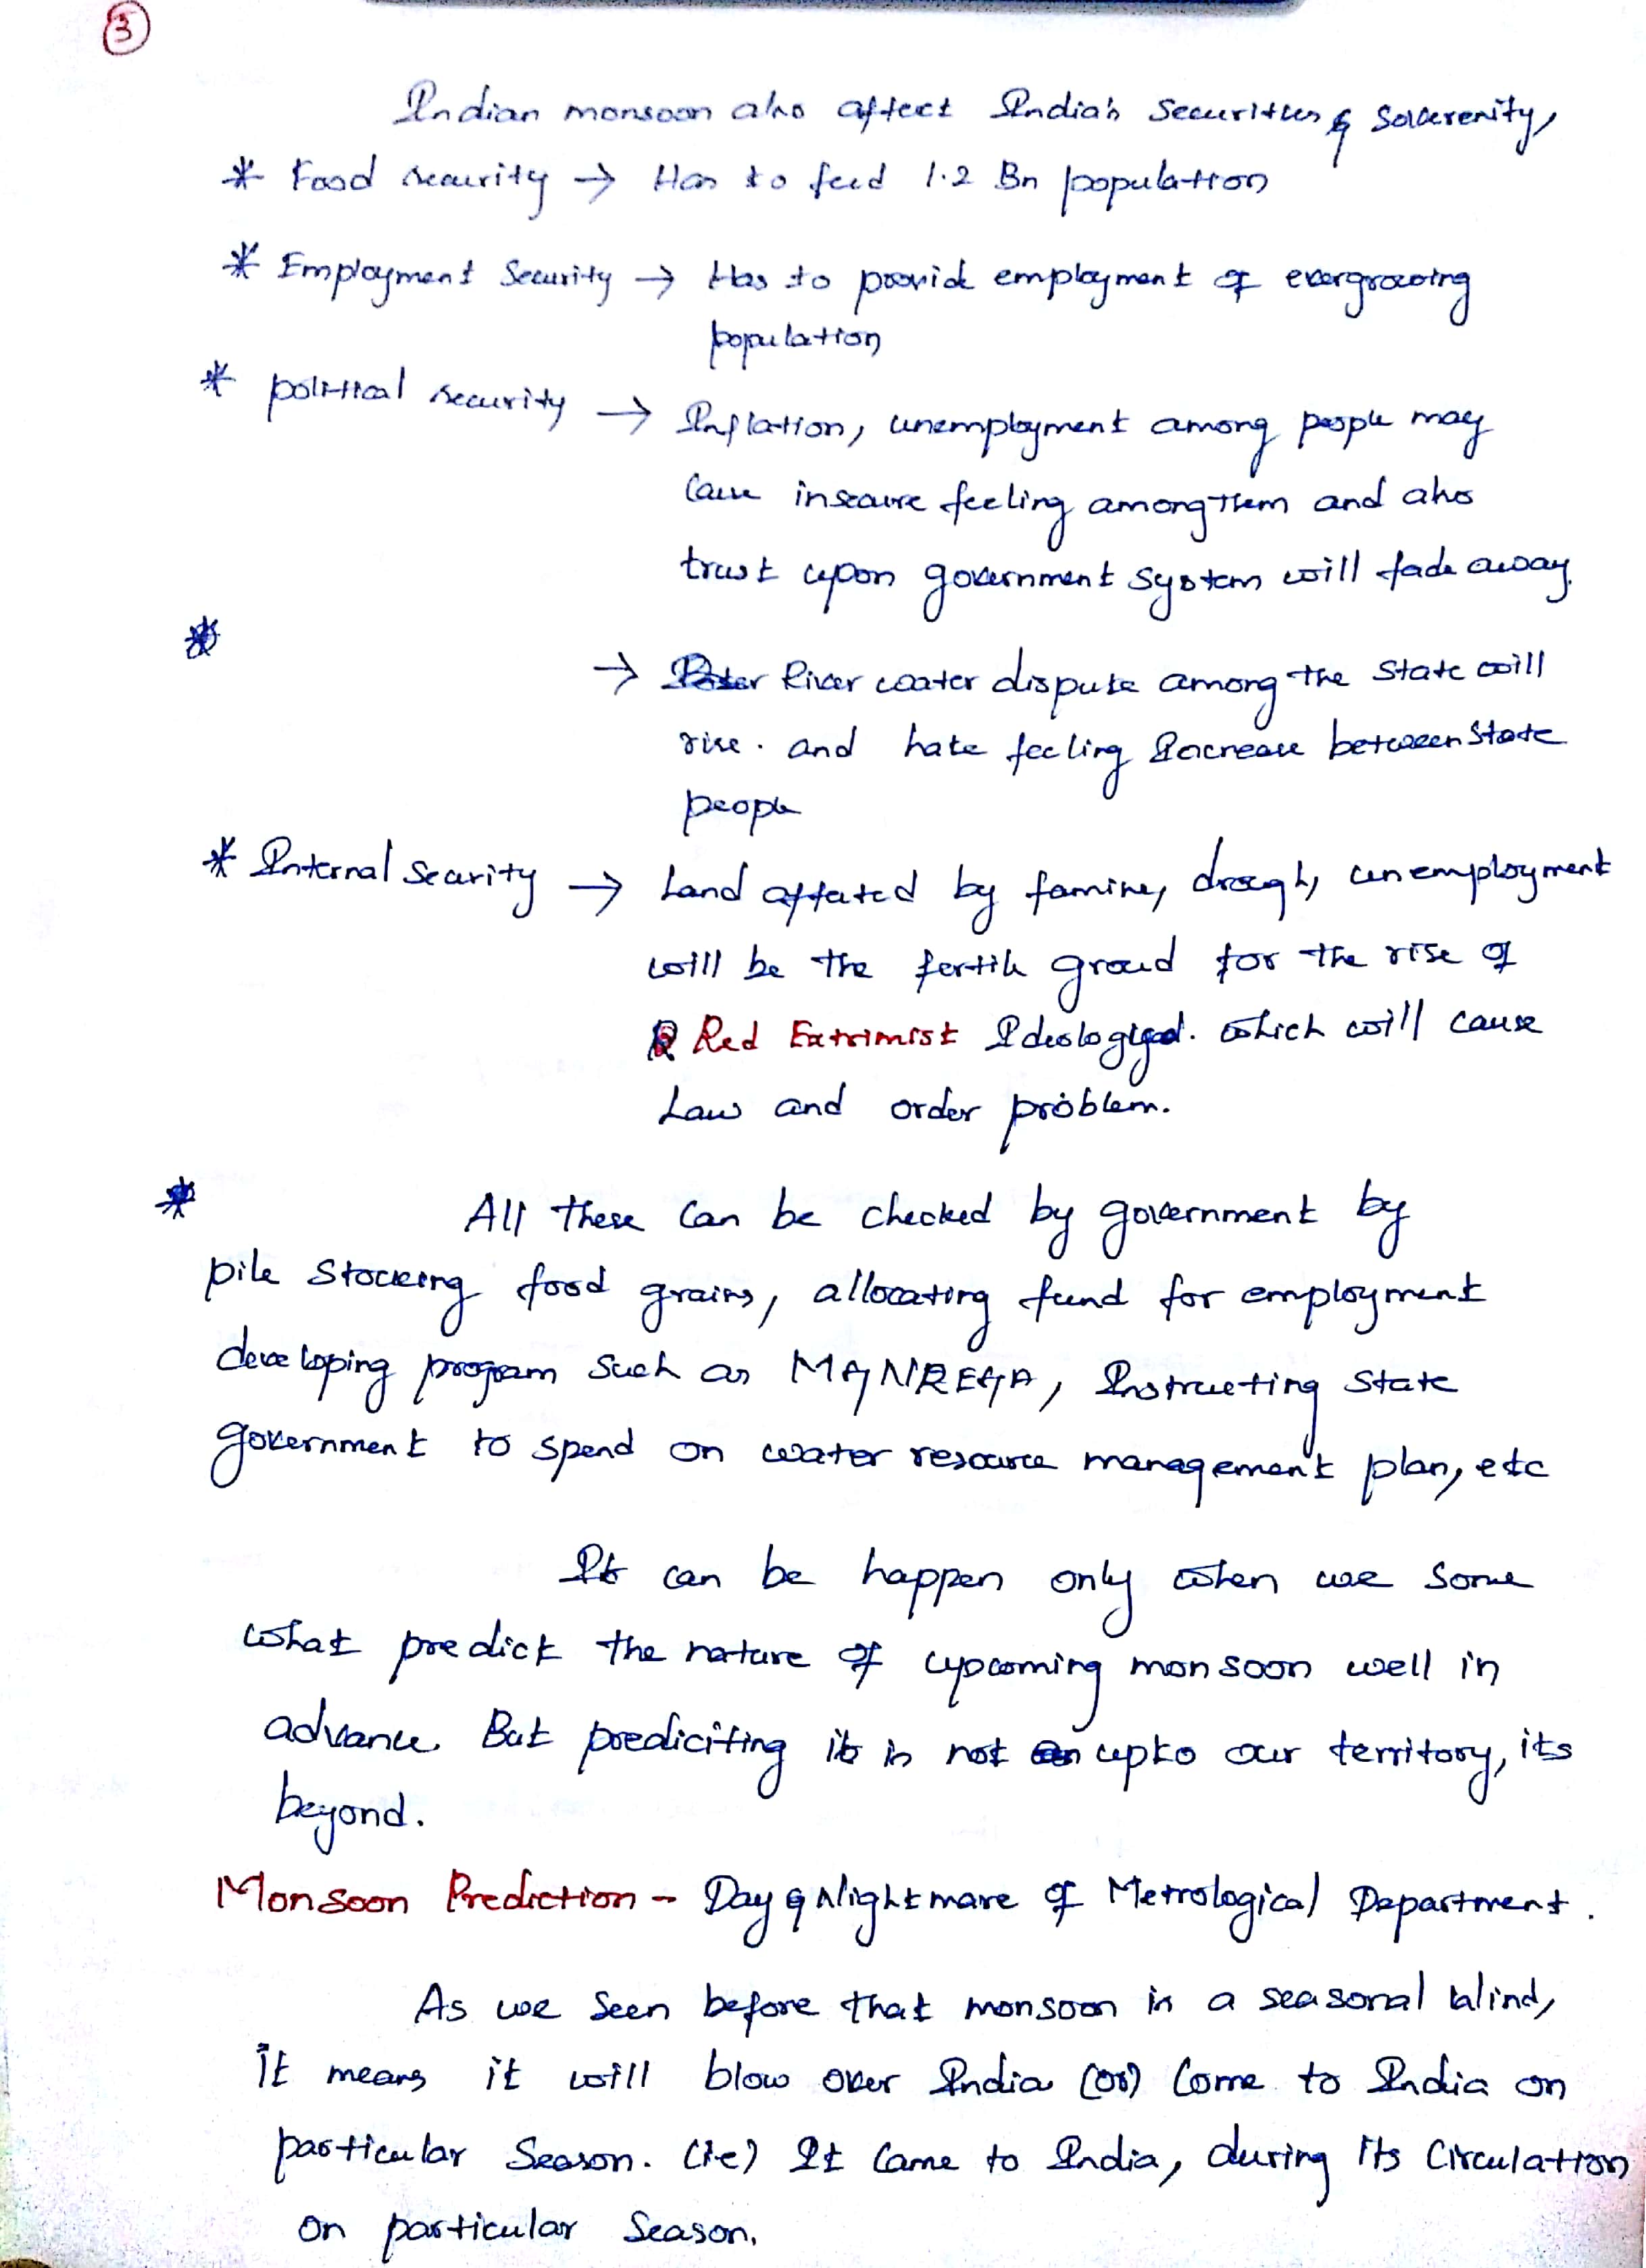 3
Indian monsoon also affect India's Securities & Soverenity,
* Food security → Has to feed 1.2 Bn population
* Employment Security → Has to provide employment of evergrowing
population
* political security → Inflation, unemployment among people may
Cause insecure feeling among them and also
trust upon government system will fade away.
*
→ River water dispute among the State will
rise. and hate feeling Increase between State
people
* Internal Security → Land affected by famine, drough, unemployment
will be the fertile groud for the rise of
Red Extrimist Ideologied. Which will cause
Law and order problem.
* All these Can be checked by government by
pile Stocking food grains, allocating fund for employment
developing program Such as MGNREGA, Instructing State
government to spend on water resource management plan, etc
It can be happen only when we Some
what predict the nature of upcoming monsoon well in
advance. But prediciting it is not upto our territory, its
beyond.
Monsoon Prediction - Day & Nightmare of Metrological Department.
As we Seen before that monsoon is a seasonal Wind,
It means it will blow over India (or) Come to India on
particular Season. (ie) It Came to India, during its Circulation
on particular Season.